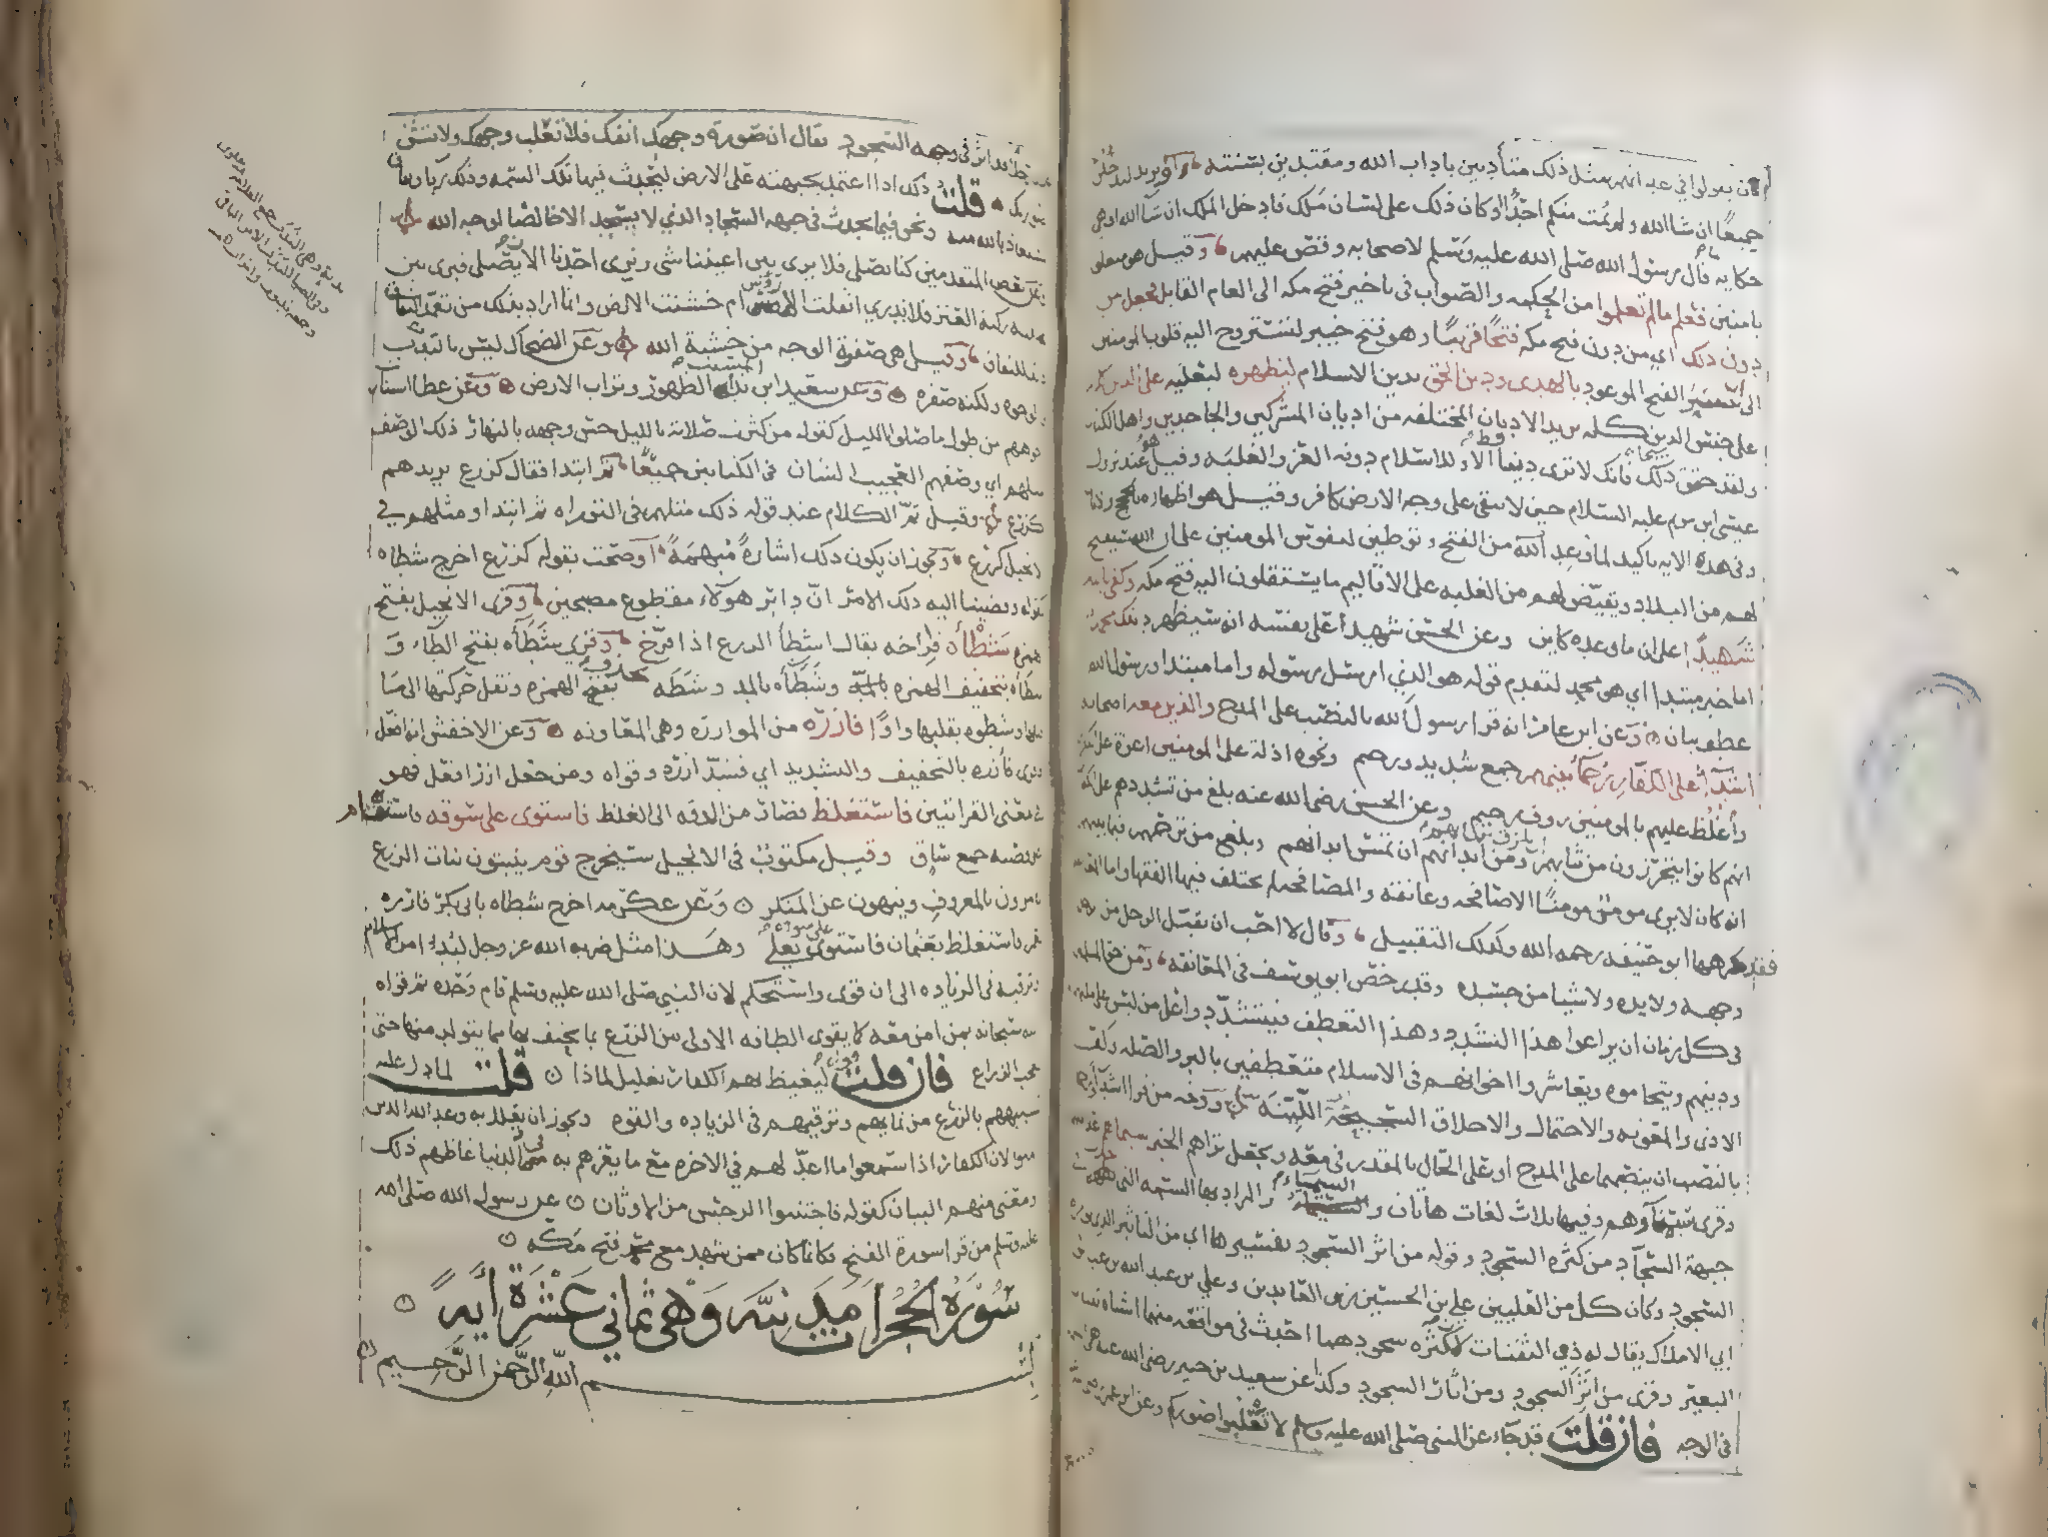 ان يقولوا في عداتهم مثل ذلك متأدبين باداب الله ومقتدين بسنته او يريد لتدخلن
جميعًا ان شا الله ولم يمت منكم احدًا او كان ذلك على لسان ملك فادخل الملك ان شا الله او هي
حكاية ما قال رسول الله صلى الله عليه وسلم لاصحابه وقص عليهم وقيل هو متعلق
بامنين فعلم مالم تعلموا من الحكمه والصواب في تاخير فتح مكه الى العام القابل فجعل من
دون ذلك اي من دون فتح مكه فتحًا قريبًا وهو فتح خيبر لتستروح اليه قلوب المومنين
الى ان يتيسر الفتح الموعود بالهدى ودين الحق بدين الاسلام ليظهره ليعليه على الدين كله
على جنس الدين كله يريد الاديان المختلفه من اديان المشركين والجاحدين واهل الكتاب
ولقد حقق ذلك سبحانه فانك لا ترى دينا قط الا وللاسلام دونه العز والغلبه وقيل هو عند نزول
عيسى ابن مريم عليه السلام حين لا يبقى على وجه الارض كافر وقيل هو اظهاره بالحجج والايات
وفي هذه الايه تاكيد لما وعد الله من الفتح وتوطين لنفوس المومنين على ان الله سيفتح
لهم من البلاد ويقيض لهم من الغلبه على الاقاليم ما يستقلون اليه فتح مكه وكفى بالله
شهيدًا على ان ما وعده كاين وعن الحسن شهيدا على نفسه انه سيظهر دينك محمد
اما خبر مبتدا اي هو محمد لتقدم قوله هو الذي ارسل رسوله واما مبتدا ورسول الله
عطف بيان وعن ابن عامر انه قرا رسول الله بالنصب على المدح والذين معه اصحابه
اشداء على الكفار رحماء بينهم جمع شديد ورحيم ونحوه اذلة على المومنين اعزة على الكافرين
واغلظ عليهم بالمومنين روف رحيم وعن الحسن رضي الله عنه بلغ من تشددهم على الكفار
انهم كانوا يتحرزون من ثيابهم ان تلزق بثيابهم ومن ابدانهم ان تمس ابدانهم وبلغ من ترحمهم فيما بينهم
انه كان لا يرى مومن مومنًا الا صافحه وعانقه والمصافحه لم يختلف فيها الفقها واما المعانقه
فقد كرهها ابو حنيفه رحمه الله وكذلك التقبيل وقال لا احب ان يقبل الرجل من الرجل
وجهه ولا يده ولا شيا من جسده وقد رخص ابو يوسف في المعانقه ومن حق المسلمين
في كل زمان ان يراعوا هذا التشدد وهذا التعطف فيتشددوا على من ليس على ملتهم
ودينهم ويتحاموه ويعاشروا اخوانهم في الاسلام متعطفين بالبر والصله وكف
الاذى والمعونه والاحتمال والاخلاق السجيحة اللينه ووجه من قرا اشداء
بالنصب ان ينصبهما على المدح او على الحال بالمقدر في معه ويجعل تراهم الخبر سيماهم علامتهم
وقرى سيماؤهم وفيها ثلاث لغات هاتان والسيمياء والمراد بها السمه التي تحدث في
جبهة السجاد من كثره السجود وقوله من اثر السجود يفسرها اي من التاثير الذي يوثره
السجود وكان كل من العليين علي بن الحسين زين العابدين وعلي بن عبد الله بن عباس
ابي الاملاك يقال له ذو الثفنات لان كثره سجودهما احدث في مواقعه منهما اشباه ثفنات
البعير وقرى من اثر السجود ومن اثار السجود وكذا عن سعيد بن جبير رضي الله عنه هي السمة
في الوجه فان قلت قد جاء عن النبي صلى الله عليه وسلم لا تعلبوا صوركم وعن ابن عمر
رجلا قد اثر في وجهه السجود فقال ان صورة وجهك انفك فلا تعلب وجهك ولا تشن
صورتك قلت ذلك اذا اعتمد بجبهته على الارض لتحدث فيها تلك السمه وذلك ريا ونفاق
يستعاذ بالله منه ونحن فيما يحدث في جبهه السجاد الذي لا يسجد الا خالصا لوجه الله
وعن بعض المتقدمين كنا نصلي فلا يرى بين اعيننا شي ونرى احدنا الان يصلي فيرى بين
عينيه ركبه العنز فلا ندري اثقلت الاروس ام خشنت الارض وانما اراد بذلك من تعمد ذلك
للنفاق وقيل هي صفرة الوجه من خشية الله وعن الضحاك ليس بالندب
في الوجوه ولكنه صفره وعن سعيد ابن المسيب ندى الطهور وتراب الارض وعن عطا استنارت
وجوههم من طول ما صلوا بالليل كقوله من كثرت صلاته بالليل حسن وجهه بالنهار ذلك الوصف
مثلهم اي وصفهم العجيب الشان في الكتابين جميعًا ثم ابتدا فقال كزرع يريد هم
كزرع وقيل تم الكلام عند قوله ذلك مثلهم في التوراه ثم ابتدا ومثلهم في
الانجيل كزرع ويجوز ان يكون ذلك اشارةً مبهمةً اوضحت بقوله كزرع اخرج شطاه
كقوله وقضينا اليه ذلك الامر ان دابر هولاء مقطوع مصبحين وقرى الانجيل بفتح
الهمزه شطأه فراخه يقال اشطأ الزرع اذا فرخ وقرى شطأه بفتح الطاء و
شطاه بتخفيف الهمزه وشطآه بالمد وشطه بحذف الهمزه ونقل حركتها الى ما
قبلها وشطوه بقلبها واوًا فازره من الموازره وهي المعاونه وعن الاخفش انه افعل
وقرى فأزره بالتخفيف والتشديد اي فشد ازره وقواه ومن جعل ازر افعل فهو
في معنى القراتين فاستغلظ فصار من الدقه الى الغلظ فاستوى على سوقه فاستقام
على قصبه جمع ساق وقيل مكتوب في الانجيل سيخرج قوم ينبتون نبات الزرع
يامرون بالمعروف وينهون عن المنكر وعن عكرمه اخرج شطاه بابي بكر فازره
بعمر فاستغلظ بعثمان فاستوى على سوقه بعلي وهذا مثل ضربه الله عز وجل لبدء امر الاسلام
وترقيه في الزياده الى ان قوى واستحكم لان النبي صلى الله عليه وسلم قام وحده ثم قواه
الله سبحانه بمن امن معه كما يقوى الطاقه الاولى من الزرع بما يحتف بها مما يتولد منها حتى
يعجب الزراع فان قلت قوله ليغيظ بهم الكفار تعليل لماذا قلت لما دل عليه
تشبيههم بالزرع من نمايهم وترقيهم في الزياده والقوه ويجوز ان يعلل به وعد الله الذين
امنوا لان الكفار اذا سمعوا ما اعد لهم في الاخره مع ما يعزهم به في الدنيا غاظهم ذلك
ومعنى منهم البيان كقوله فاجتنبوا الرجس من الاوثان عن رسول الله صلى الله
عليه وسلم من قرا سورة الفتح فكانما كان ممن شهد مع محمد فتح مكه
سُورَةُ الحُجُرَات مَدَنِيَّه وَهْيَ ثماني عَشْرَةَ أيَةً
بسم الله الرحمن الرحيم